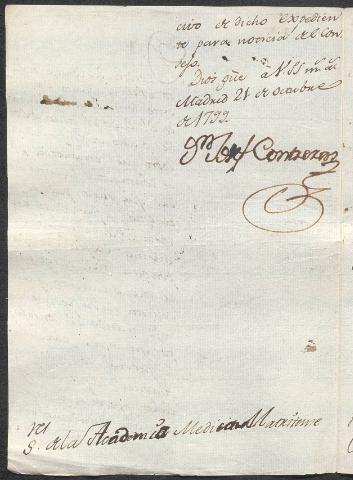 civo de dicho expedien
te para noticia del Con
sejo.
Dios gũe à VSS m.s a.s
Madrid 21 de Octubre
de 1799.
Contreras
S.res de la Academia Medica Matritense